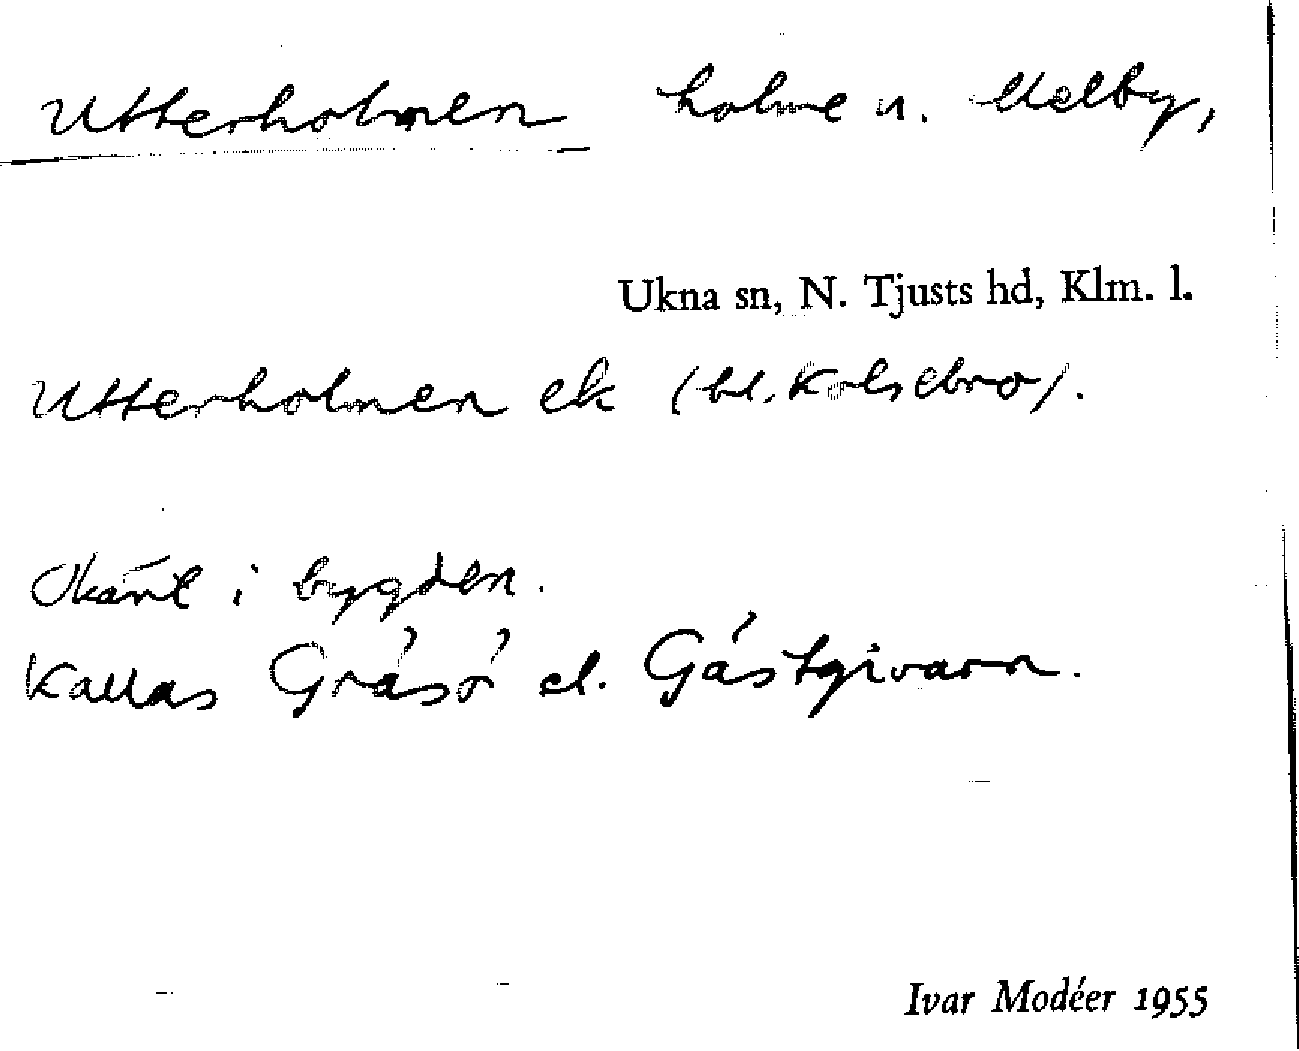 Utterholmen holme n. Melby,
Ukna sn, N. Tjusts hd, Klm. l.
Utterholmen ek (bl. Kolsebro).
Okänt i bygden.
Kallas Gräsö el. Gästgivarn.
Ivar Modéer 1955